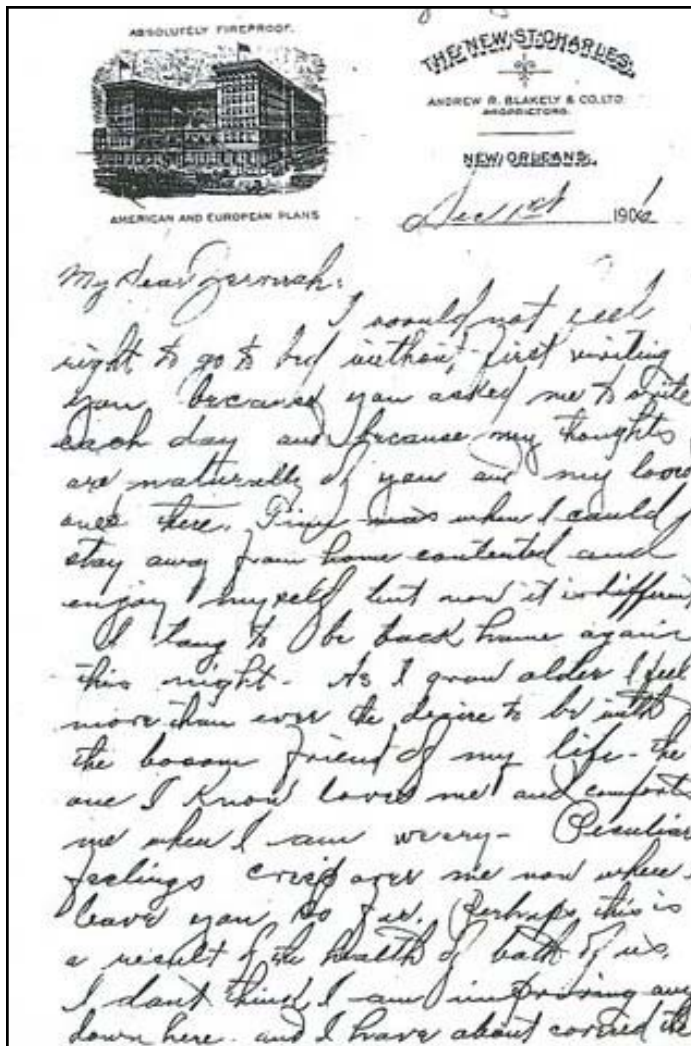 ABSOLUTELY FIREPROOF.
AMERICAN AND EUROPEAN PLANS
THE NEW ST. CHARLES.
ANDREW R. BLAKELY & CO. LTD.
PROPRIETORS.
NEW ORLEANS.
Dec 1st 190
My Dear
I would not feel
right to go to bed without first writing
you because you asked me to write
each day and because my thoughts
are naturally of you and my loved
ones there. Time was when I could
stay away from home contented and
enjoy myself but now it is different
I long to be back home again
this night - As I grow older I feel
more than ever the desire to be with
the bosom friend of my life - the
one I know loves me and comforts
me when I am weary - Peculiar
feelings creep over me now when
leave you so far. Perhaps this is
a result of the health of both of us.
I dont think I am improving any
down here. and I have about covered the